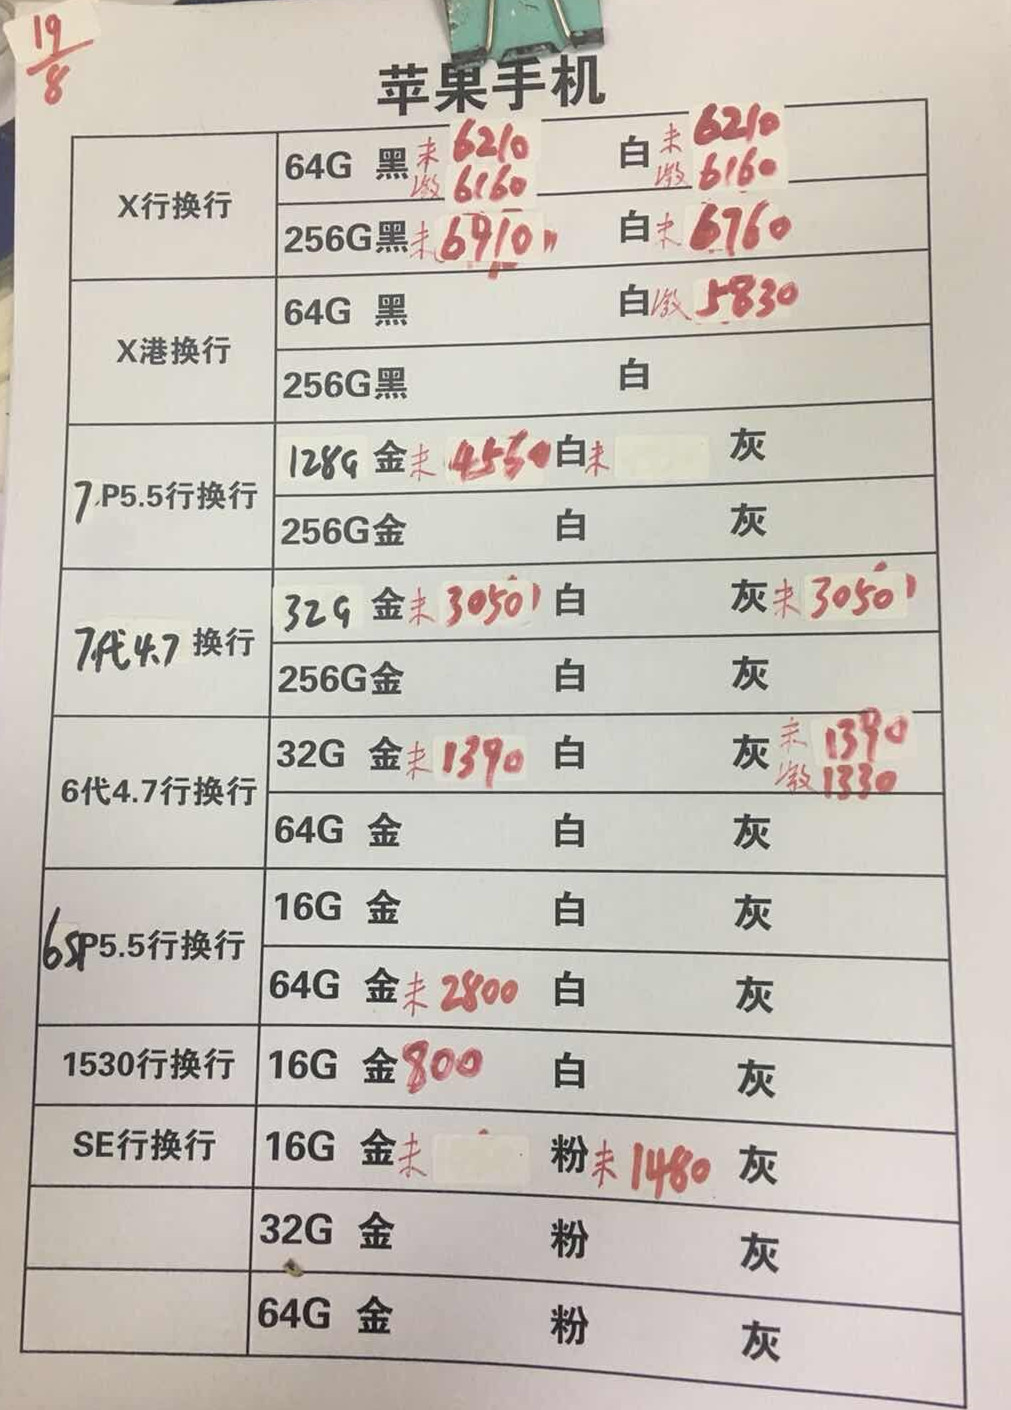 19/8
苹果手机
X行换行 64G 黑 未 6210 激 6160 白 未 6210 激 6160
256G 黑 未 6910 白 未 6760
X港换行 64G 黑 白 激 5830
256G 黑 白
7P5.5行换行 128G 金 未 4550 白 未 灰
256G 金 白 灰
7代4.7换行 32G 金 未 3050 白 灰 未 3050
256G 金 白 灰
6代4.7行换行 32G 金 未 1390 白 灰 未 1390 激 1330
64G 金 白 灰
6SP5.5行换行 16G 金 白 灰
64G 金 未 2800 白 灰
1530行换行 16G 金 800 白 灰
SE行换行 16G 金 未 粉 未 1480 灰
32G 金 粉 灰
64G 金 粉 灰